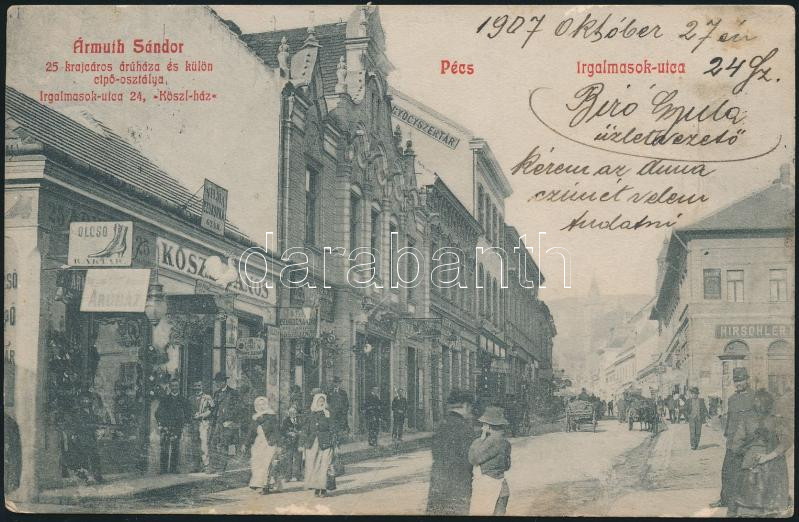 Ármuth Sándor
25 krajcáros áruháza és külön
cipő-osztálya,
Irgalmasok-utca 24, "Köszl-ház"
Pécs
Irgalmasok-utca
1907 Október 27 én
24 Sz.
Biró Gyula
üzletvezető
Kérem az
czimét velem
tudatni
GYÓGYSZERTÁR
OLCSÓ
RAKTÁR
ÁRUHÁZ
HIRSCHLER
darabanth